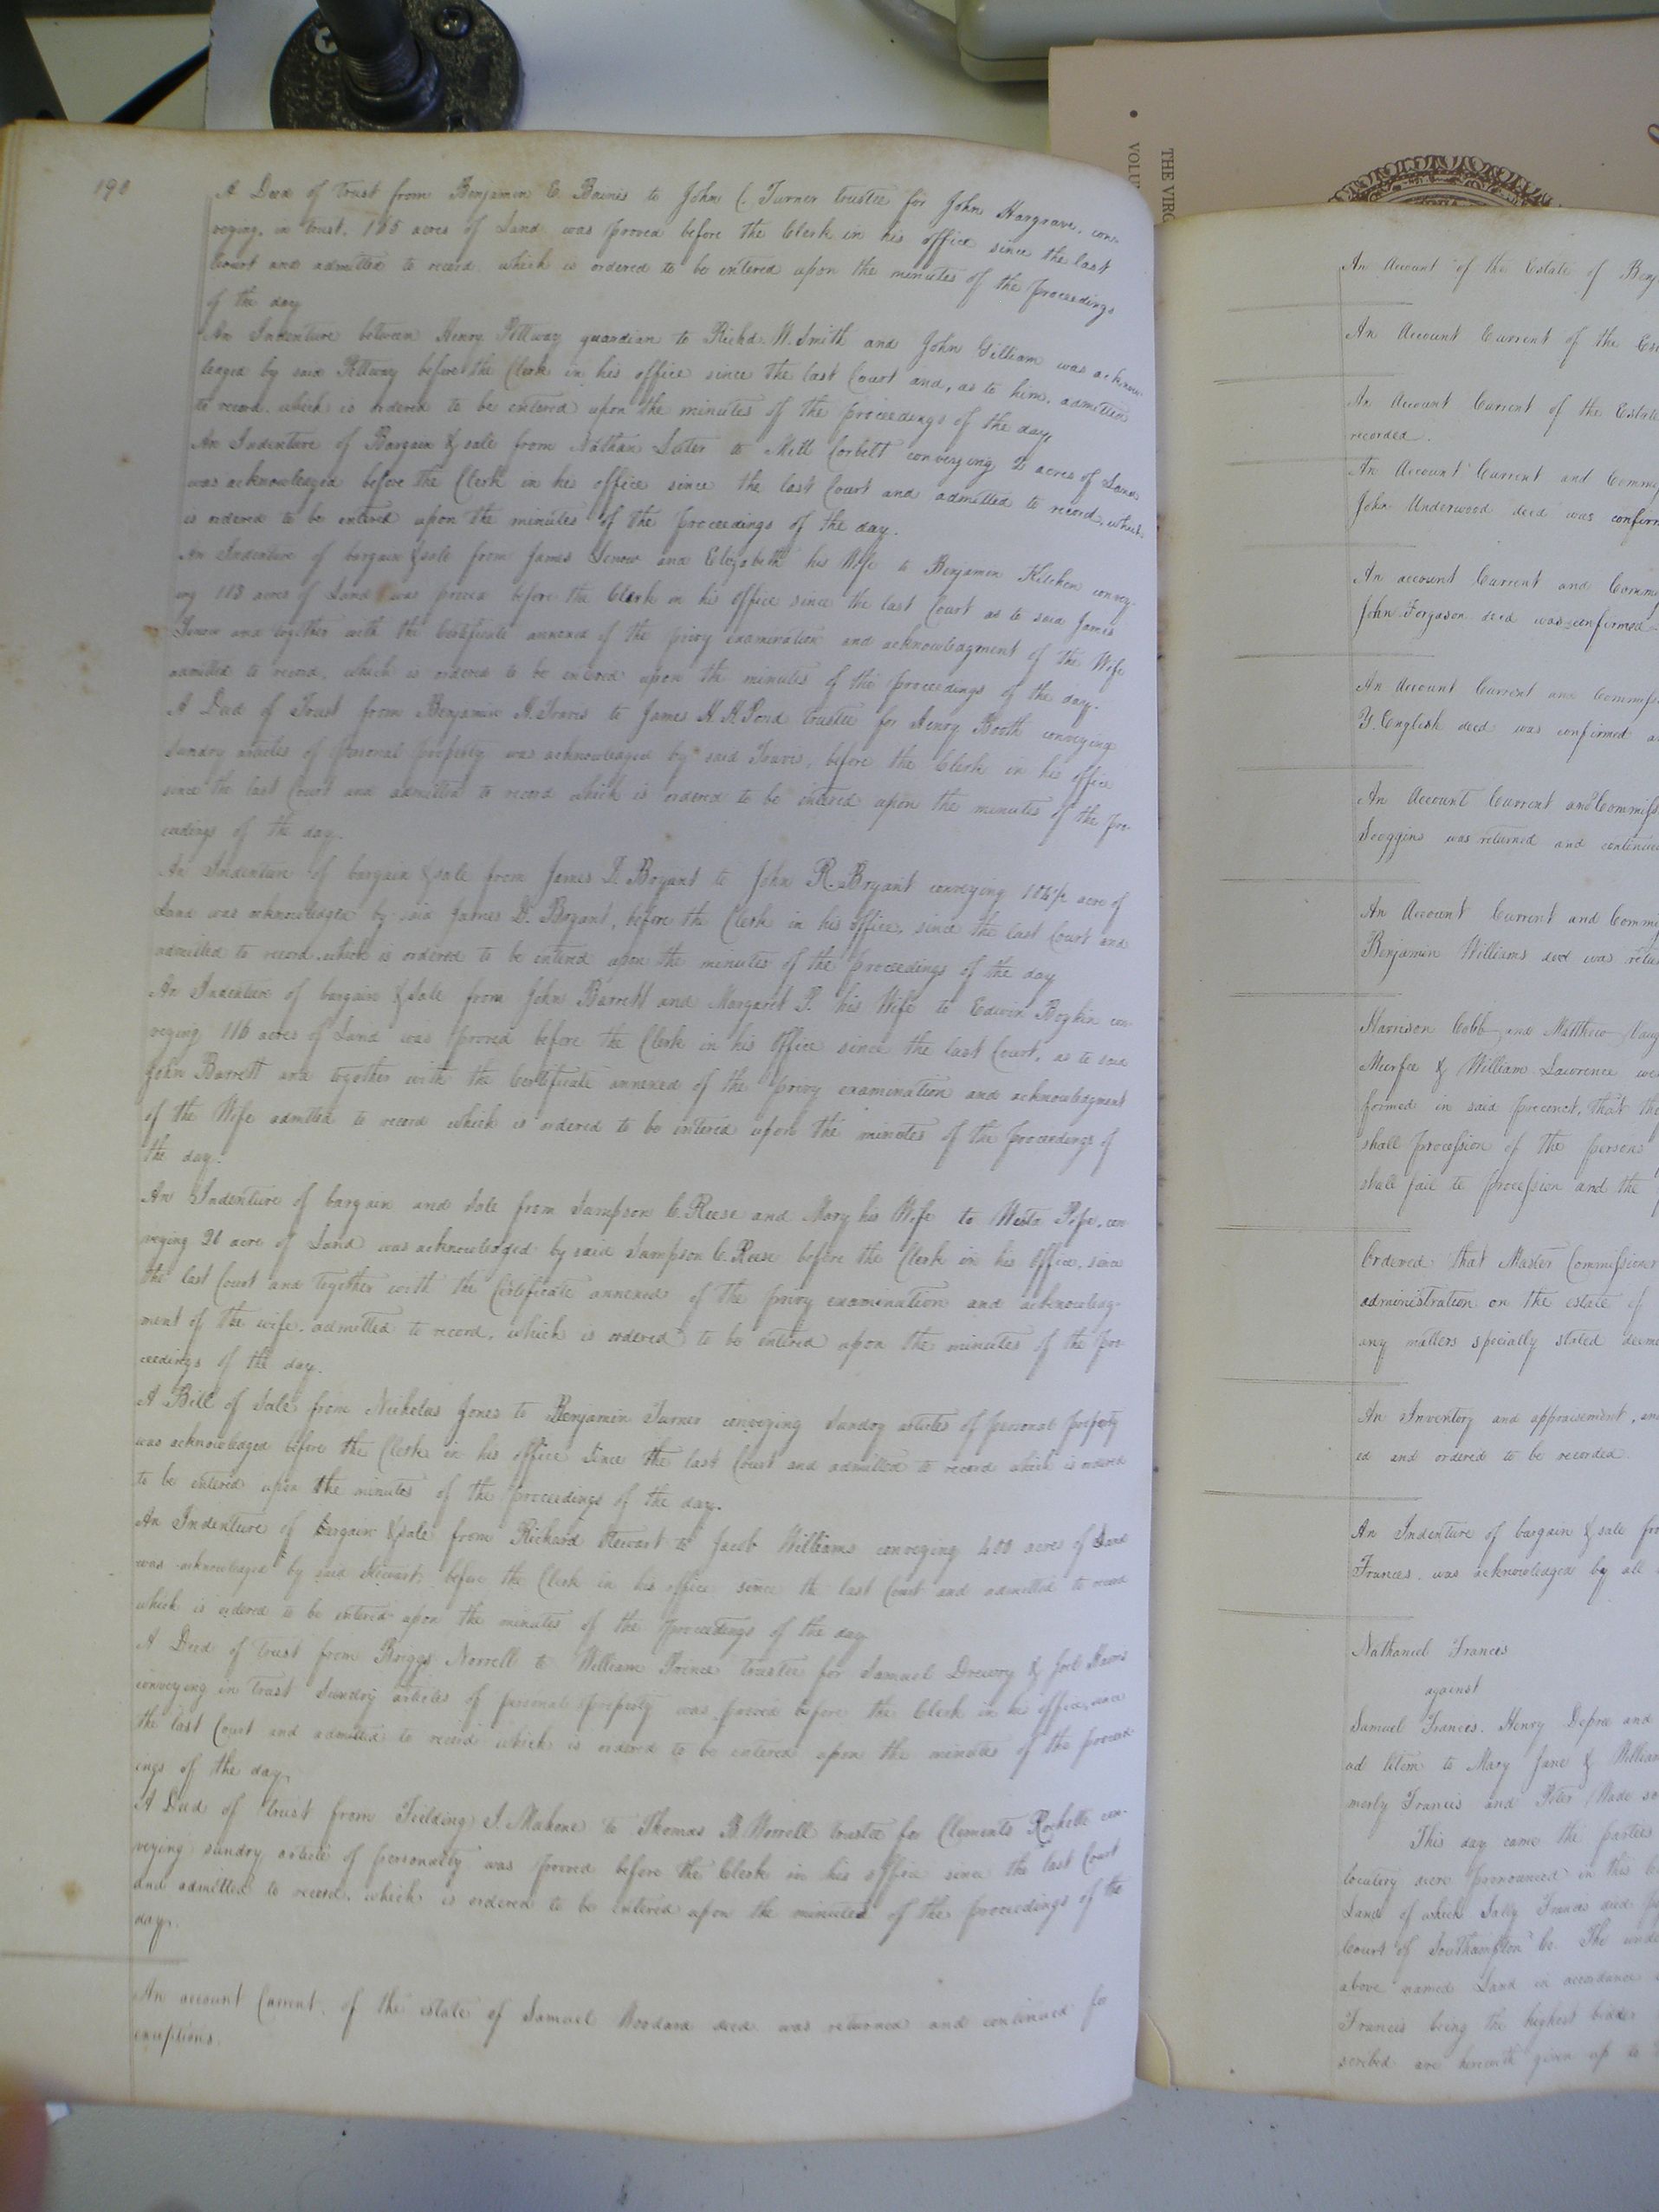 190
A Deed of trust from Benjamin E. Baines to John C. Turner trustee for John Hargrave, con-
veying, in trust, 165 acres of Land was proved before the Clerk in his office since the last
Court and admitted to record which is ordered to be entered upon the minutes of the proceedings
of the day
An Indenture between Henry Pettway guardian to Richd. W. Smith and John Gilliam was acknow-
ledged by said Pettway before the Clerk in his office since the last Court and, as to him, admitted
to record, which is ordered to be entered upon the minutes of the proceedings of the day
An Indenture of Bargain & sale from Nathan to Mill Corbett conveying 2 acres of Land
was acknowledged before the Clerk in his office since the last Court and admitted to record, which
is ordered to be entered upon the minutes of the proceedings of the day.
An Indenture of bargain & sale from James and Elizabeth his Wife to Benjamin Kitchen convey-
ing 113 acres of Land was proved before the Clerk in his office since the last Court as to said James
and together with the Certificate annexed of the privy examination and acknowledgment of the Wife
admitted to record, which is ordered to be entered upon the minutes of the proceedings of the day.
A Deed of Trust from Benjamin H. Travis to James H. H. Pond trustee for Henry Booth conveying
Sundry articles of personal property was acknowledged by said Travis, before the Clerk in his office
since the last Court and admitted to record which is ordered to be entered upon the minutes of the pro-
ceedings of the day.
An Indenture of bargain & sale from James D. Bryant to John R. Bryant conveying acre of
Land was acknowledged by said James D. Bryant, before the Clerk in his office, since the last Court and
admitted to record which is ordered to be entered upon the minutes of the proceedings of the day
An Indenture of bargain & Sale from John Barrett and Margaret P. his Wife to Edwin Boykin con-
veying 116 acres of Land was proved before the Clerk in his Office since the last Court, as to said
John Barrett and together with the Certificate annexed of the privy examination and acknowledgment
of the Wife admitted to record which is ordered to be entered upon the minutes of the proceedings of
the day.
An Indenture of bargain and Sale from Sampson C. Reese and Mary his Wife to Pope, con-
veying acre of Land was acknowledged by said Sampson C. Reese before the Clerk in his Office, since
the last Court and together with the Certificate annexed of the privy examination and acknowledg-
ment of the wife, admitted to record, which is ordered to be entered upon the minutes of the pro-
ceedings of the day.
A Bill of Sale from Nicholas Jones to Benjamin Turner conveying Sundry articles of personal property
was acknowledged before the Clerk in his office Since the last Court and admitted to record which is ordered
to be entered upon the minutes of the proceedings of the day.
An Indenture of bargain & sale from Richard Stewart to Jacob Williams conveying 400 acres of Land
was acknowledged by said Stewart, before the Clerk in his office since the last Court and admitted to record
which is ordered to be entered upon the minutes of the proceedings of the day
A Deed of trust from Briggs Norrell to William trustee for Samuel Drewry & Joel
conveying in trust Sundry articles of personal property was proved before the Clerk in his office, since
the last Court and admitted to record which is ordered to be entered upon the minutes of the proceed-
ings of the day.
A Deed of trust from Feilding J. Mahone to Thomas B. Worrell trustee for Clements Rochelle con-
veying sundry article of personality was proved before the Clerk in his office since the last Court
and admitted to record, which is ordered to be entered upon the minutes of the proceedings of the
day.
An account Current of the estate of Samuel Woodard decd. was returned and continued for
exceptions.
THE VIRG
VOLU
An Account of the Estate of Benj
An Account Current of the Est
An Account Current of the Estate
recorded.
An Account Current and Commi
John Underwood decd was confirm
An account Current and Commi
John Fergason decd was confirmed
An Account Current and Commiss
Y. English decd was confirmed a
An Account Current and Commiss
Scoggins was returned and continued
An Account Current and Commi
Benjamin Williams decd was retu
Harrison Cobb and Matthew Vaug
Murfee & William Lawrence we
formed in said precinct, that the
shall procession of the persons
shall fail to procession and the
Ordered that Master Commissioner
administration on the estate of
any matters specially stated deeme
An Inventory and appraisement, an
ed and ordered to be recorded
An Indenture of bargain & sale fro
Frances was acknowledged by all
Nathaniel Frances
against
Samuel Frances, Henry Depree and
ad litem to Mary Jane & William
merly Francis and Peter Wade
This day came the parties
locutory decree pronounced in this
Land of which Sally Francis died
Court of Southampton Co. The und
above named Land in accordance
Francis being the highest bidder
scribed are herewith given up to